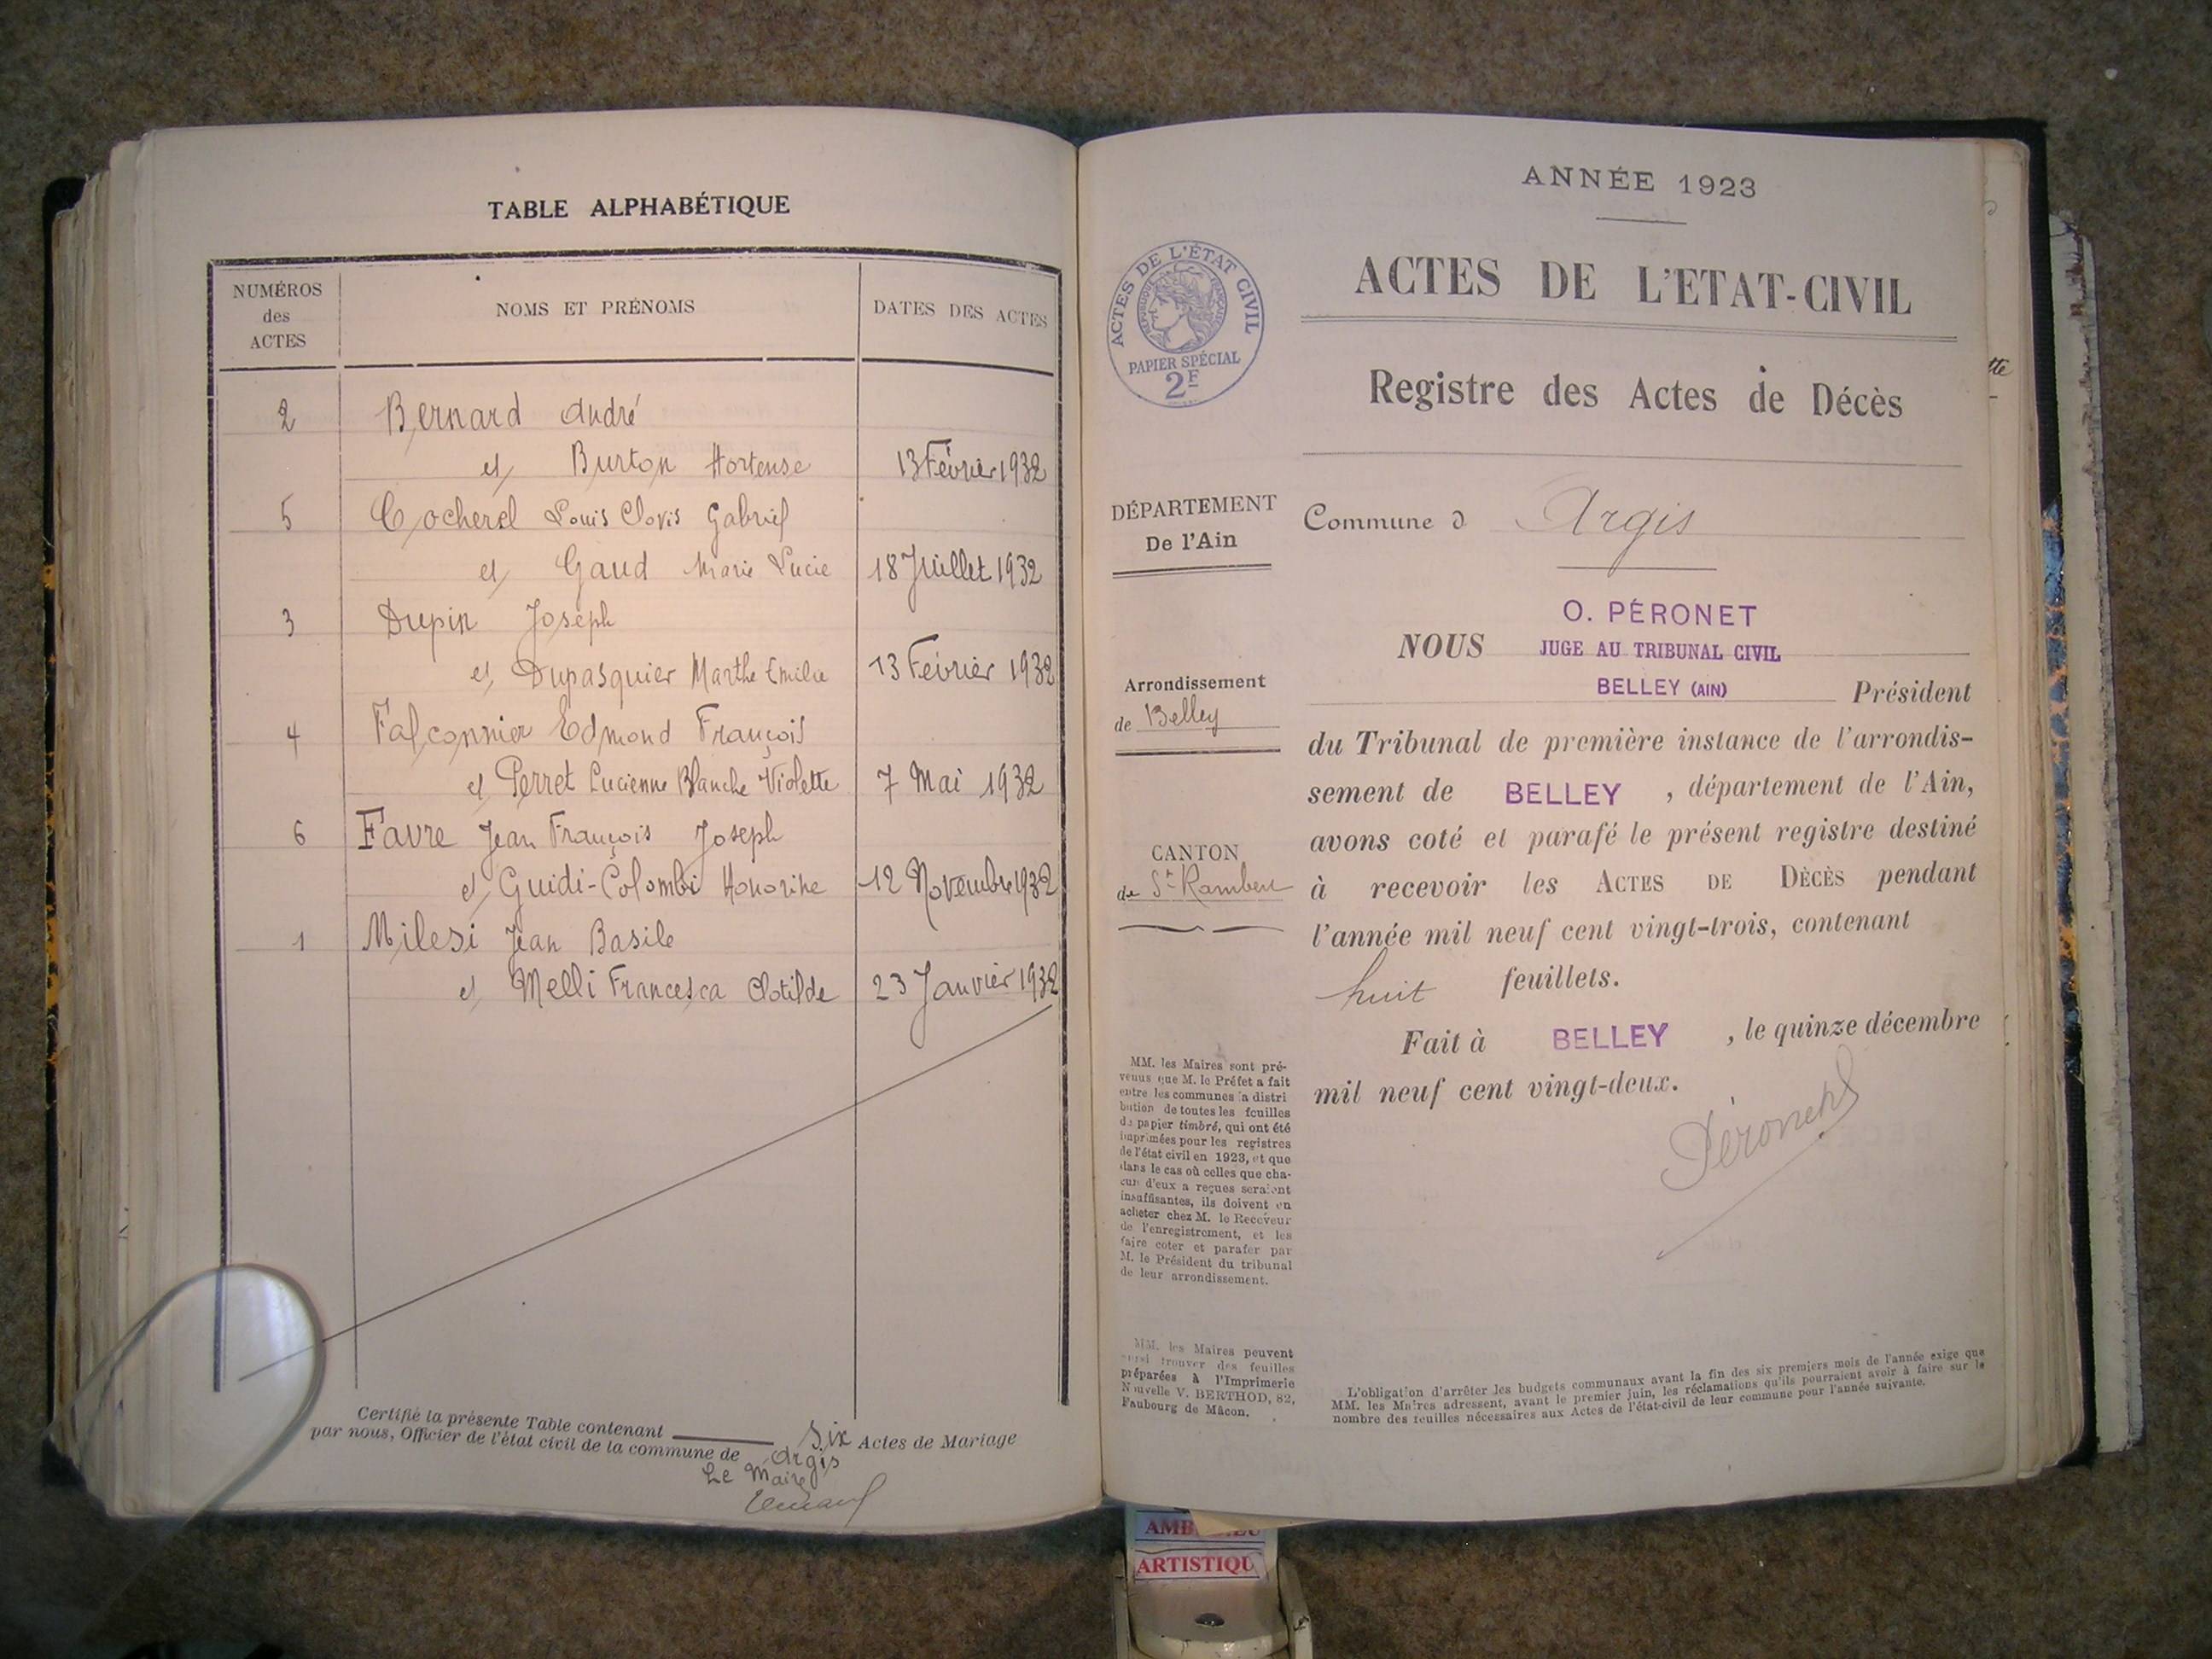 TABLE ALPHABÉTIQUE
NUMÉROS
des
ACTES
NOMS ET PRÉNOMS
DATES DES ACTES
2 Bernard André
et Burton Hortense 13 Février 1932
5 Cocherel Louis Clovis Gabriel
et Gaud Marie Lucie 18 Juillet 1932
3 Dupin Joseph
et Dupasquier Marthe Emilie 13 Février 1932
4 Falconnier Edmond François
et Perret Lucienne Blanche Violette 7 Mai 1932
6 Favre Jean François Joseph
et Guidi-Colombi Honorine 12 Novembre 1932
1 Milesi Jean Basile
et Melli Francesca Clotilde 23 Janvier 1932
Certifié la présente Table contenant six Actes de Mariage
par nous, Officier de l'état civil de la commune de Argis
Le Maire
ANNÉE 1923
ACTES DE L'ÉTAT CIVIL
RÉPUBLIQUE FRANÇAISE
PAPIER SPÉCIAL
2F
ACTES DE L'ETAT-CIVIL
Registre des Actes de Décès
DÉPARTEMENT
De l'Ain
Arrondissement
de Belley
CANTON
de St Rambert
MM. les Maires sont pré-
venus que M. le Préfet a fait
entre les communes la distri
bution de toutes les feuilles
de papier timbré, qui ont été
imprimées pour les registres
de l'état civil en 1923, et que
dans le cas où celles que cha-
cun d'eux a reçues seraient
insuffisantes, ils doivent en
acheter chez M. le Receveur
de l'enregistrement, et les
faire coter et parafer par
M. le Président du tribunal
de leur arrondissement.
MM. les Maires peuvent
aussi trouver des feuilles
préparées à l'Imprimerie
Nouvelle V. BERTHOD, 82,
Faubourg de Mâcon.
Commune d Argis
O. PÉRONET
NOUS JUGE AU TRIBUNAL CIVIL
BELLEY (AIN) Président
du Tribunal de première instance de l'arrondis-
sement de BELLEY , département de l'Ain,
avons coté et parafé le présent registre destiné
à recevoir les ACTES DE DÉCÈS pendant
l'année mil neuf cent vingt-trois, contenant
huit feuillets.
Fait à BELLEY , le quinze décembre
mil neuf cent vingt-deux.
Péronet
L'obligation d'arrêter les budgets communaux avant la fin des six premiers mois de l'année exige que
MM. les Maires adressent, avant le premier juin, les réclamations qu'ils pourraient avoir à faire sur le
nombre des feuilles nécessaires aux Actes de l'état-civil de leur commune pour l'année suivante.
ARTISTIQU